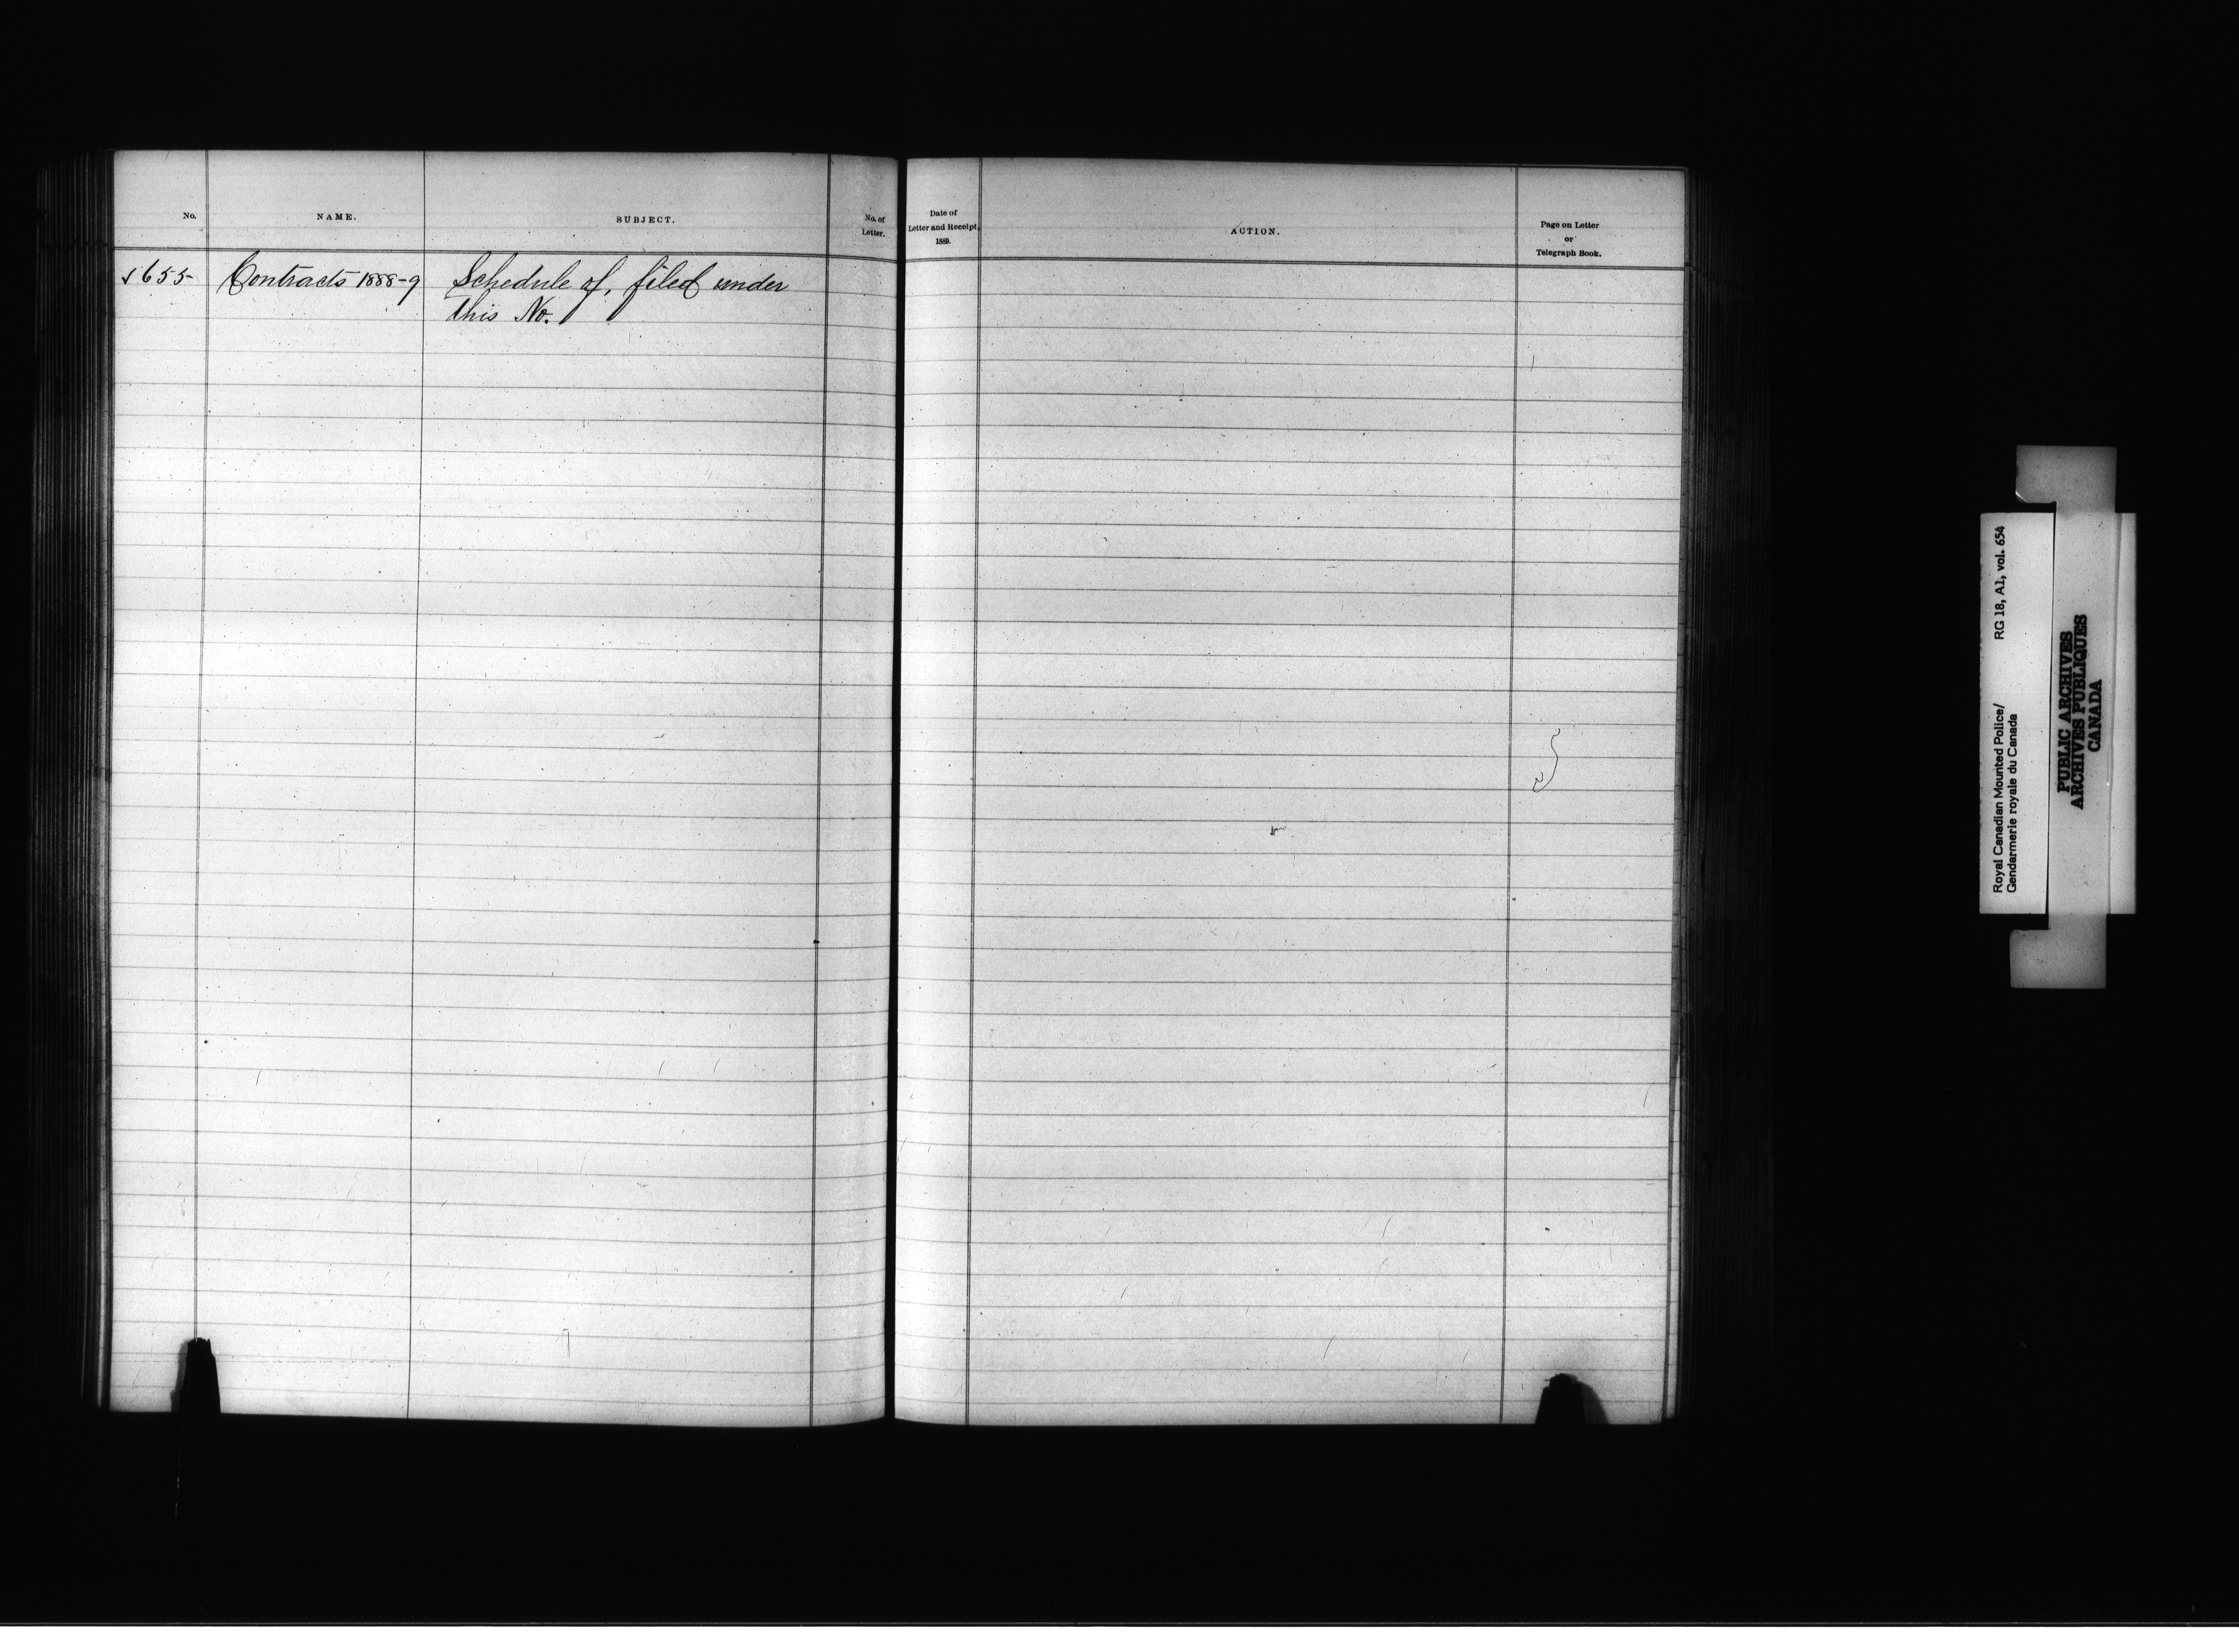 No.
NAME.
SUBJECT.
No. of
Letter.
Date of
Letter and Receipt,
1889.
ACTION.
Page on Letter
or
Telegraph Book.
√ 655
Contracts 1888-9
Schedule of, filed under
this No.
Royal Canadian Mounted Police/ RG 18, A1, vol. 654
Gendarmerie royale du Canada
PUBLIC ARCHIVES
ARCHIVES PUBLIQUES
CANADA